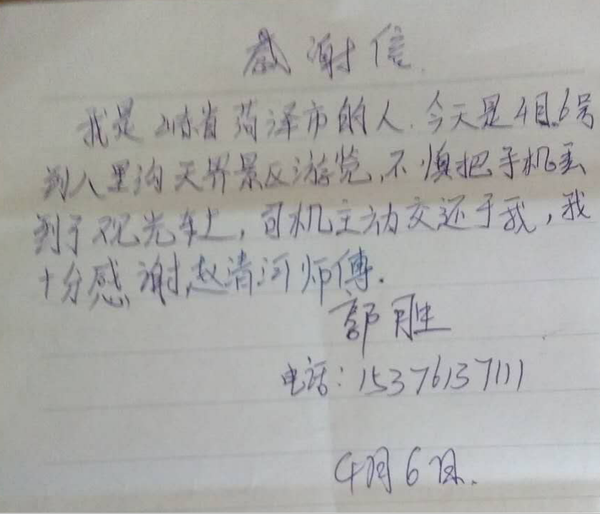 感谢信
我是山东省菏泽市的人.今天是4月.6号
到八里沟天界景区游览,不慎把手机丢
到了观光车上,司机主动交还于我,我
十分感谢,赵清河师傅.
郭胜
电话:15376137111
4月6日.